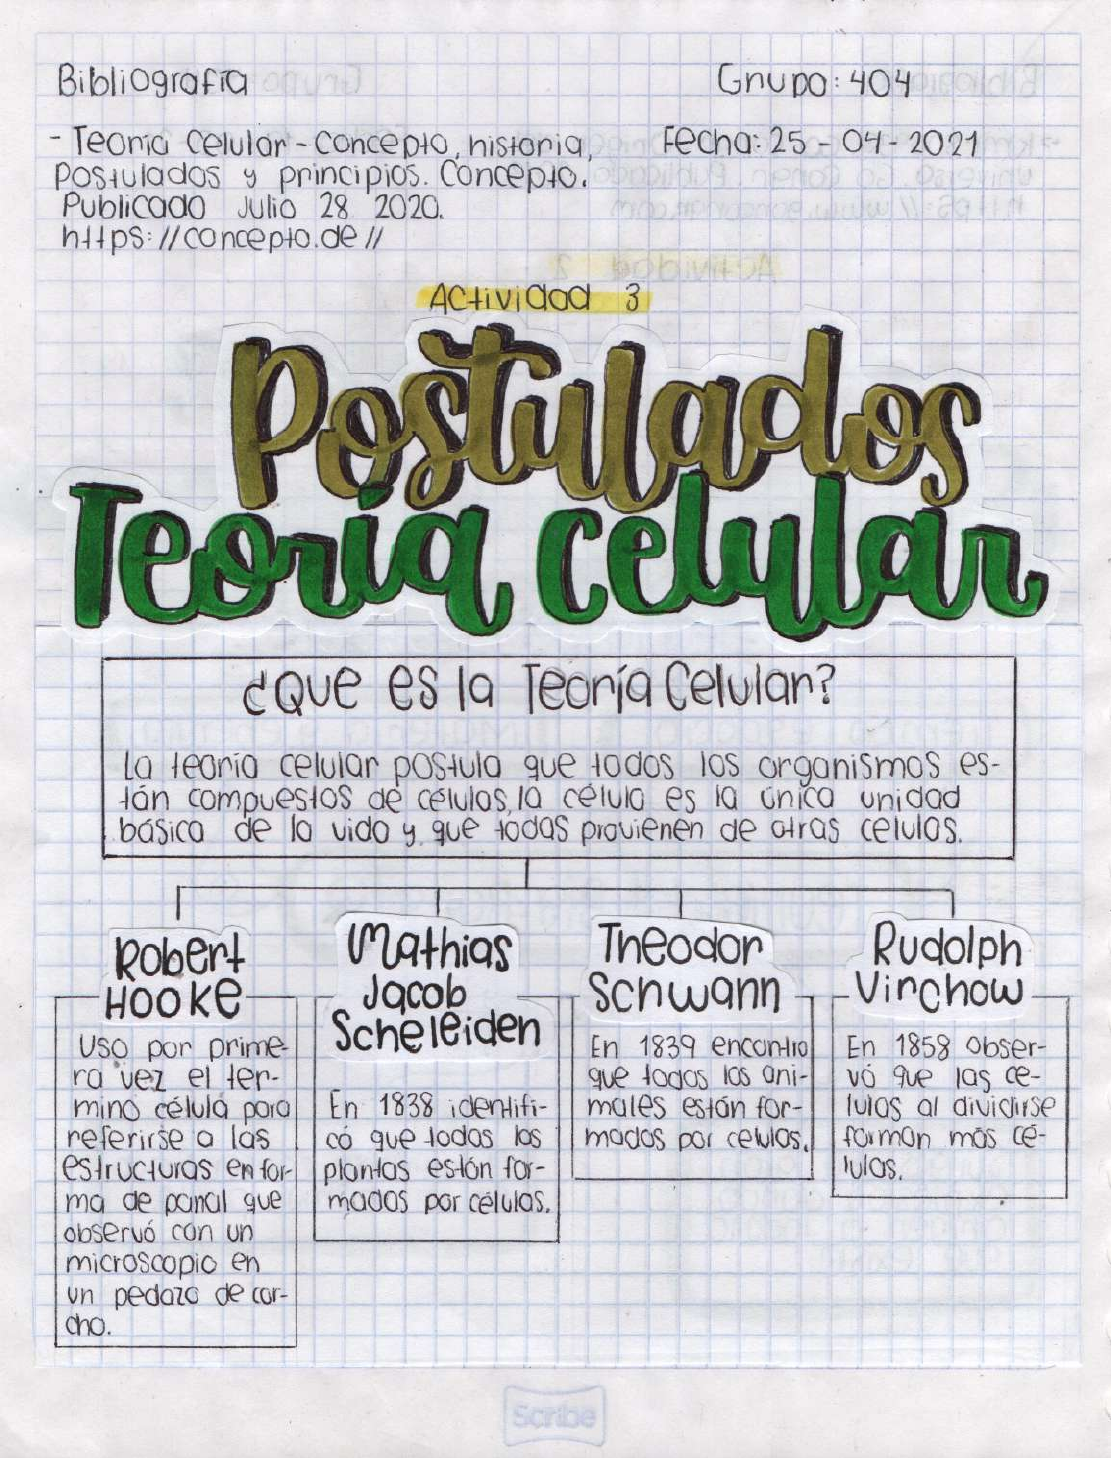 Bibliografía
Grupo: 404
- Teoría Celular - Concepto, historia,
Postulados y principios. Concepto.
Publicado Julio 28 2020.
https://concepto.de//
Fecha: 25 - 04 - 2021
Actividad 3
Postulados
Teoría celular
¿Que es la Teoría Celular?
La teoría celular postula que todos los organismos es-
tán compuestos de células, la célula es la única unidad
básica de la vida y que todas provienen de otras celulas.
Robert
Hooke
Uso por prime-
ra vez el ter-
mino célula para
referirse a las
estructuras en for-
ma de panal que
observó con un
microscopio en
un pedazo de cor-
cho.
Mathias
Jacob
Scheleiden
En 1838 identifi-
có que todos los
plantas están for-
mados por células.
Theodor
Schwann
En 1839 encontro
que todos los ani-
males están for-
mados por celulas.
Rudolph
Virchow
En 1858 obser-
vó que las ce-
lulas al dividirse
forman más cé-
lulas.
Scribe